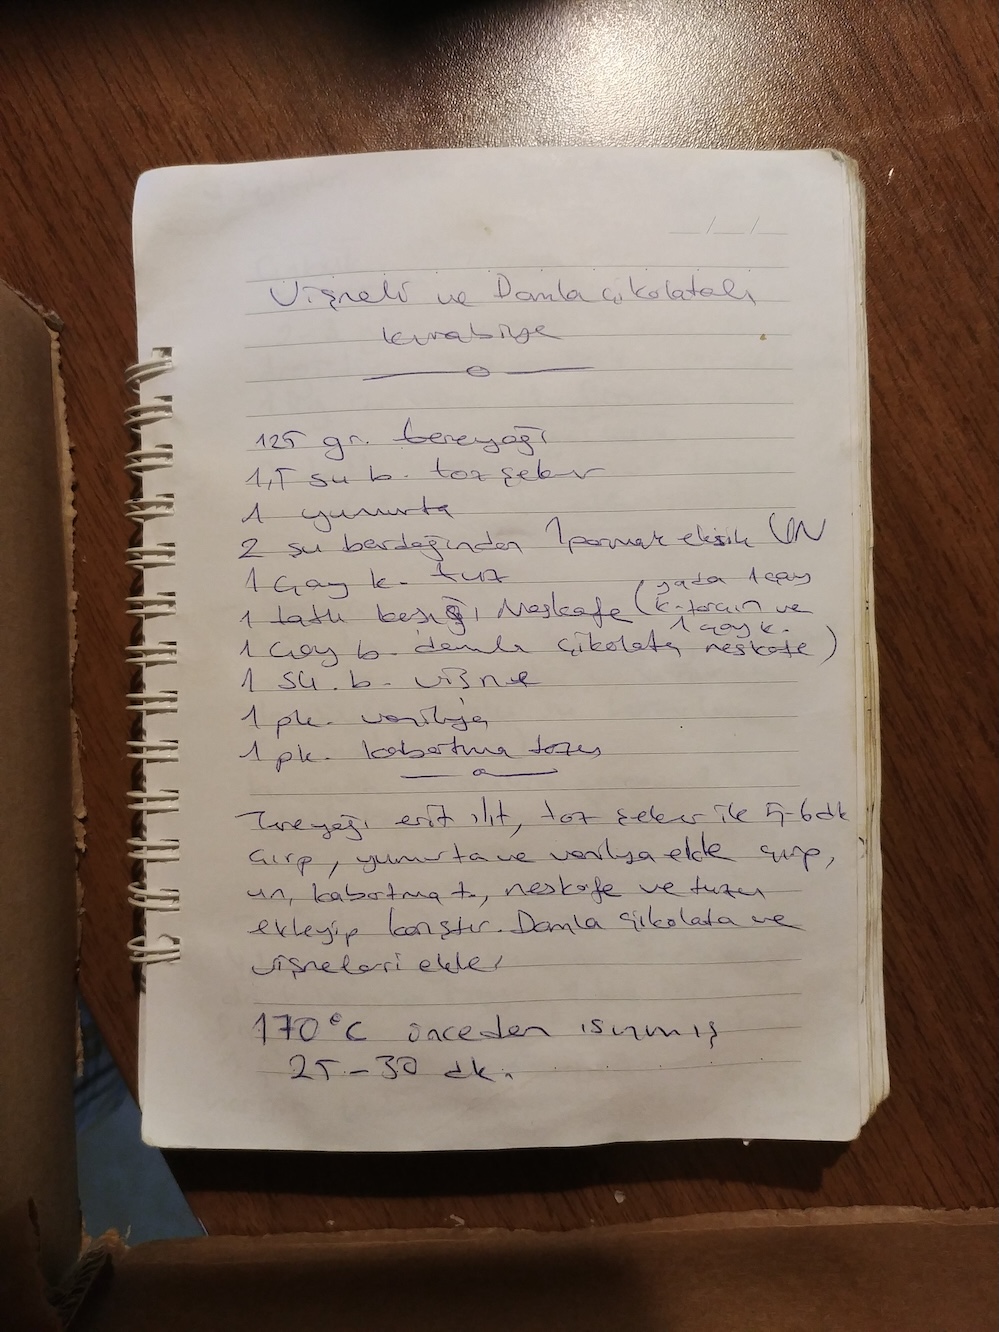 Vişneli ve Damla çikolatalı
kurabiye
125 gr. tereyağı
1,5 su b. toz şeker
1 yumurta
2 su bardağından 1 parmak eksik UN
1 çay k. tuz
1 tatlı kaşığı Neskafe (yada 1 çay
k. tarçın ve
1 çay k.
neskafe)
1 çay b. damla çikolata
1 su. b. vişne
1 pk. vanilya
1 pk. kabartma tozu
Tereyağı erit ılıt, toz şeker ile 5-6 dk
çırp, yumurta ve vanilya ekle çırp,
un, kabartma t., neskafe ve tuzu
ekleyip karıştır. Damla çikolata ve
vişneleri ekle
170°C önceden ısınmış
25-30 dk.